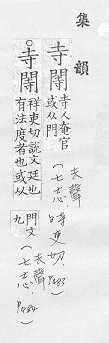 集韻
寺閽 寺人奄官
或从門
(七志)
去聲
時吏切
P483
寺閽 祥吏切說文廷也
有法度者也或以
門文
九
(七志)
去聲
P484